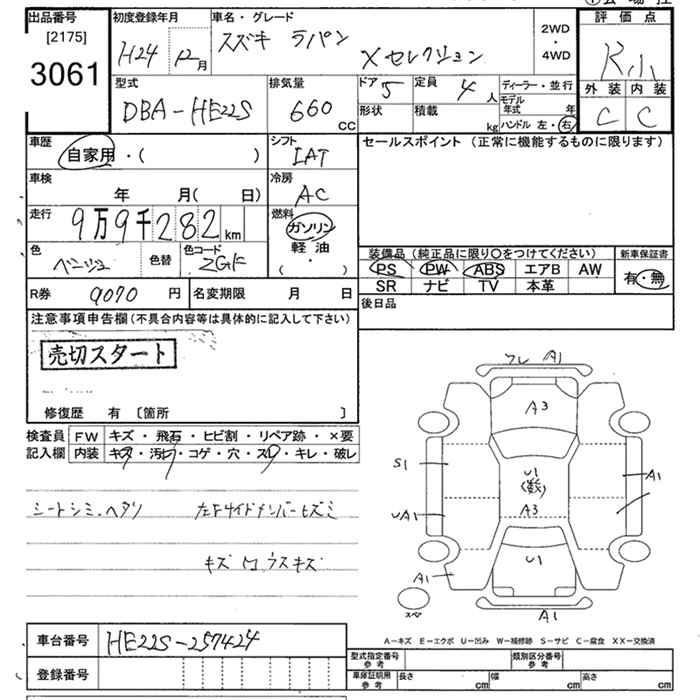 出品番号
[2175]
3061
初度登録年月
H24 12月
車名・グレード
スズキ ラパン
Xセレクション
2WD
・
4WD
評価点
R小
外装 内装
C C
型式
DBA-HE22S
排気量
660
CC
ドア 5
定員 4 人
形状
積載
kg
ディーラー・並行
モデル
年式 年
ハンドル 左・右
車歴
自家用・( )
シフト
IAT
セールスポイント (正常に機能するものに限ります)
車検
年 月( 日)
冷房
AC
走行
9万9千282km
燃料
ガソリン
軽油
( ・ )
色
ベージュ
色替
色コード
ZGF
装備品(純正品に限り〇をつけてください)
新車保証書
PS PW ABS エアB AW
SR ナビ TV 本革
有・無
R券 9070 円
名変期限 月 日
後日品
注意事項申告欄(不具合内容等は具体的に記入して下さい)
売切スタート
修復歴 有 [箇所 ]
検査員
記入欄
FW キズ・飛石・ヒビ割・リペア跡・×要
内装 キズ・汚れ・コゲ・穴・スレ・キレ・破レ
シートシミ.ヘタリ
左Fサイドメンバーヒズミ
フレ A1
A3
S1
U1
(数)
A1
UA1
A3
U1
A1
スペ
A1
A-キズ E-エクボ U-凹み W-補修跡 S-サビ C-腐食 XX-交換済
車台番号
HE22S-257424
登録番号
型式指定番号
参考
類別区分番号
参考
車庫証明用
参考
長さ cm
幅 cm
高さ cm